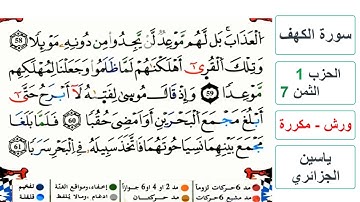 سورة الكهف
الحزب 1
الثمن 7
ورش - مكررة
ياسين
الجزائري
اَ۬لْعَذَابَۖ بَل لَّهُم مَّوْعِدٞ لَّنْ يَّجِدُواْ مِن دُونِهِۦ مَوْئِلاٗۖ 58
وَتِلْكَ اَ۬لْقُر۪ىٰٓ أَهْلَكْنَٰهُمْ لَمَّا ظَلَمُواْ وَجَعَلْنَا لِمُهْلَكِهِم
مَّوْعِداٗۖ 59 وَإِذْ قَالَ مُوس۪ىٰ لِفَت۪ىٰهُ لَآ أَبْرَحُ حَتَّىٰٓ
أَبْلُغَ مَجْمَعَ اَ۬لْبَحْرَيْنِ أَوَ اَمْضِيَ حُقُباٗۖ 60 فَلَمَّا بَلَغَا
مَجْمَعَ بَيْنِهِمَا نَسِيَا حُوتَهُمَا فَاتَّخَذَ سَبِيلَهُۥ فِے اِ۬لْبَحْرِ سَرَباٗۖ 61
مد 6 حركات لزوما
مد 2 أو 4 أو 6 جوازا
إخفاء، ومواقع الغنّة
تفخيم
مد مشبع 6 حركات
مد حركتان
ادغام، ومالا يُلفظ
قلقلة